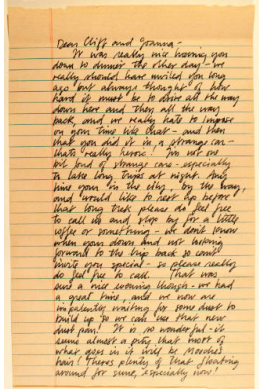 Dear Cliff and Joanna -
It was really nice having you
down to dinner the other day - we
really should have invited you long
ago but always thought of how
hard it must be to drive all the way
down here and then all the way
back, and we really hate to impose
on your time like that - and then
that you did it in a strange car -
that's really heroic! I'm not one
bit fond of strange cars - especially
to take long trips at night. Any
time you're in the city, by the way,
and would like to rest up before
that long trek please do feel free
to call us and stop by for a little
coffee or something - we don't know
when you're down and not looking
forward to the trip back so can't
invite you special - so please really
do feel free to call. That was
sure a nice evening though - we had
a great time, and we now are
impatiently waiting for some dust to
build up so we can use that new
dust pan! It is so wonderful - it
seems almost a pity that most of
what goes in it will be
hair! There's plenty of that floating
around for sure, especially now!